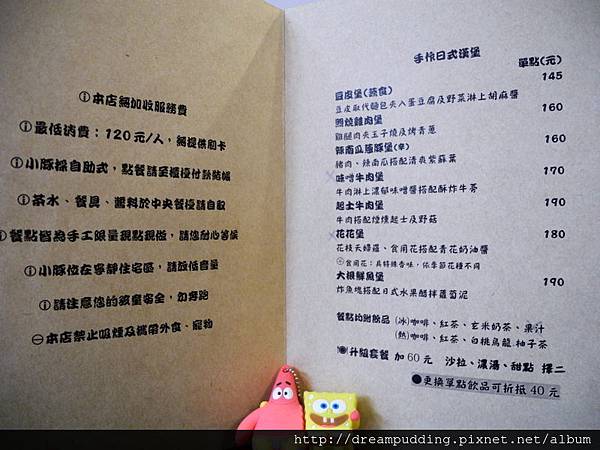 ⓘ本店無加收服務費
ⓘ最低消費：120元/人，無提供刷卡
ⓘ小豚採自助式，點餐請至櫃檯付款結帳
ⓘ茶水、餐具、醬料於中央餐檯請自取
ⓘ餐點皆為手工限量現點現做，請您耐心等候
ⓘ小豚位在寧靜住宅區，請放低音量
ⓘ請注意您的孩童安全，勿奔跑
⊖本店禁止吸煙及攜帶外食、寵物
手作日式漢堡
單點(元)
豆皮堡(蔬食) 145
豆皮取代麵包夾入蛋豆腐及野菜淋上胡麻醬
照燒雞肉堡 160
雞腿肉夾玉子燒及烤青蔥
辣南瓜豚豚堡(辛) 160
豬肉、辣南瓜搭配清爽紫蘇葉
味噌牛肉堡 170
牛肉淋上濃郁味噌醬搭配酥炸牛蒡
起士牛肉堡 190
牛肉搭配煙燻起士及野菇
花花堡 180
花枝天婦羅、食用花搭配青花奶油醬
食用花：具特殊香味，依季節花種不同
大根鮮魚堡 190
炸魚塊搭配日式水果醋拌蘿蔔泥
餐點均附飲品 (冰)咖啡、紅茶、玄米奶茶、果汁
(熱)咖啡、紅茶、白桃烏龍、柚子茶
升級套餐 加60元 沙拉、濃湯、甜點 擇二
●更換單點飲品可折抵 40 元
http://dreampudding.pixnet.net/album